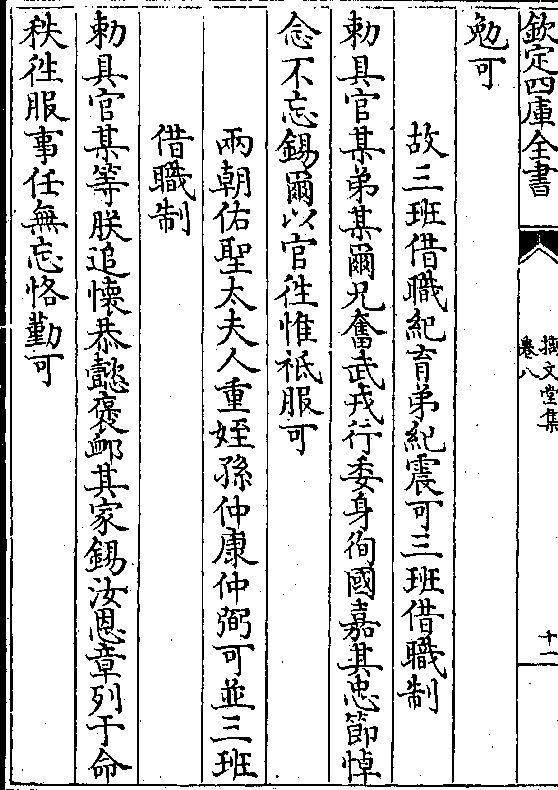 欽定四庫全書
摛文堂集
卷八
十一
勉可
故三班借職紀育弟紀震可三班借職制
勅具官某弟某爾兄奮武戎行委身徇國嘉其忠節悼
念不忘錫爾以官徃惟祗服可
兩朝佑聖太夫人重姪孫仲康仲弼可並三班
借職制
勅具官某等朕追懷恭懿褒䘏其家錫汝恩章列于命
秩徃服事任無忘恪勤可